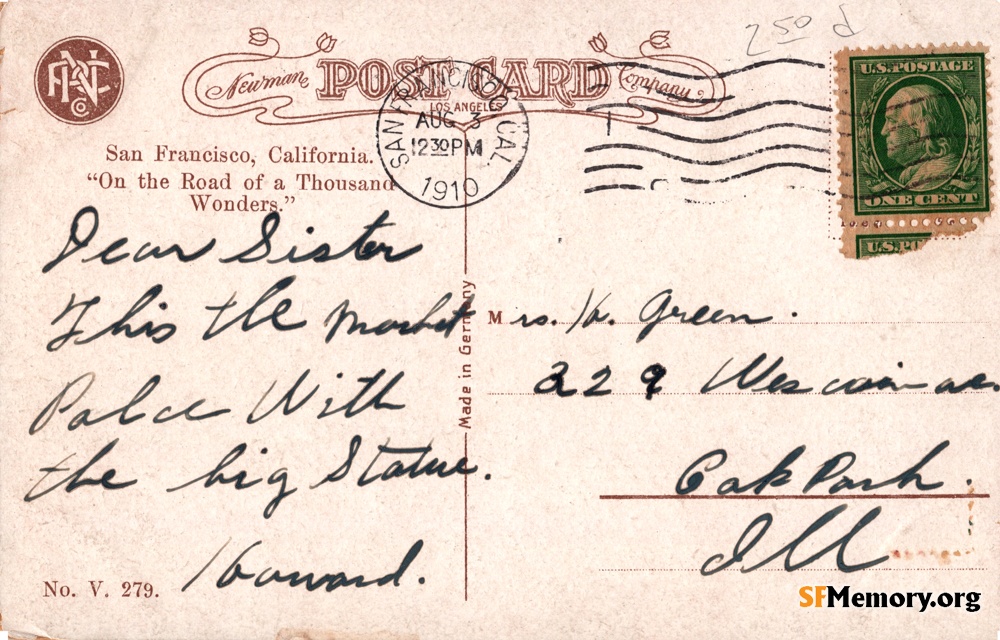 2 50 d
PNC
Co
Newman POST CARD Company
LOS ANGELES
SAN FRANCISCO, CAL.
AUG 3
12 30 PM
1910
U.S. POSTAGE
ONE CENT
U.S. PO
San Francisco, California.
“On the Road of a Thousand
Wonders.”
Dear Sister
This the Market
Palce With
the big Statue.
Howard.
No. V. 279.
Made in Germany
Mrs. H. Green.
329
Oak Park.
Ill
SFMemory.org